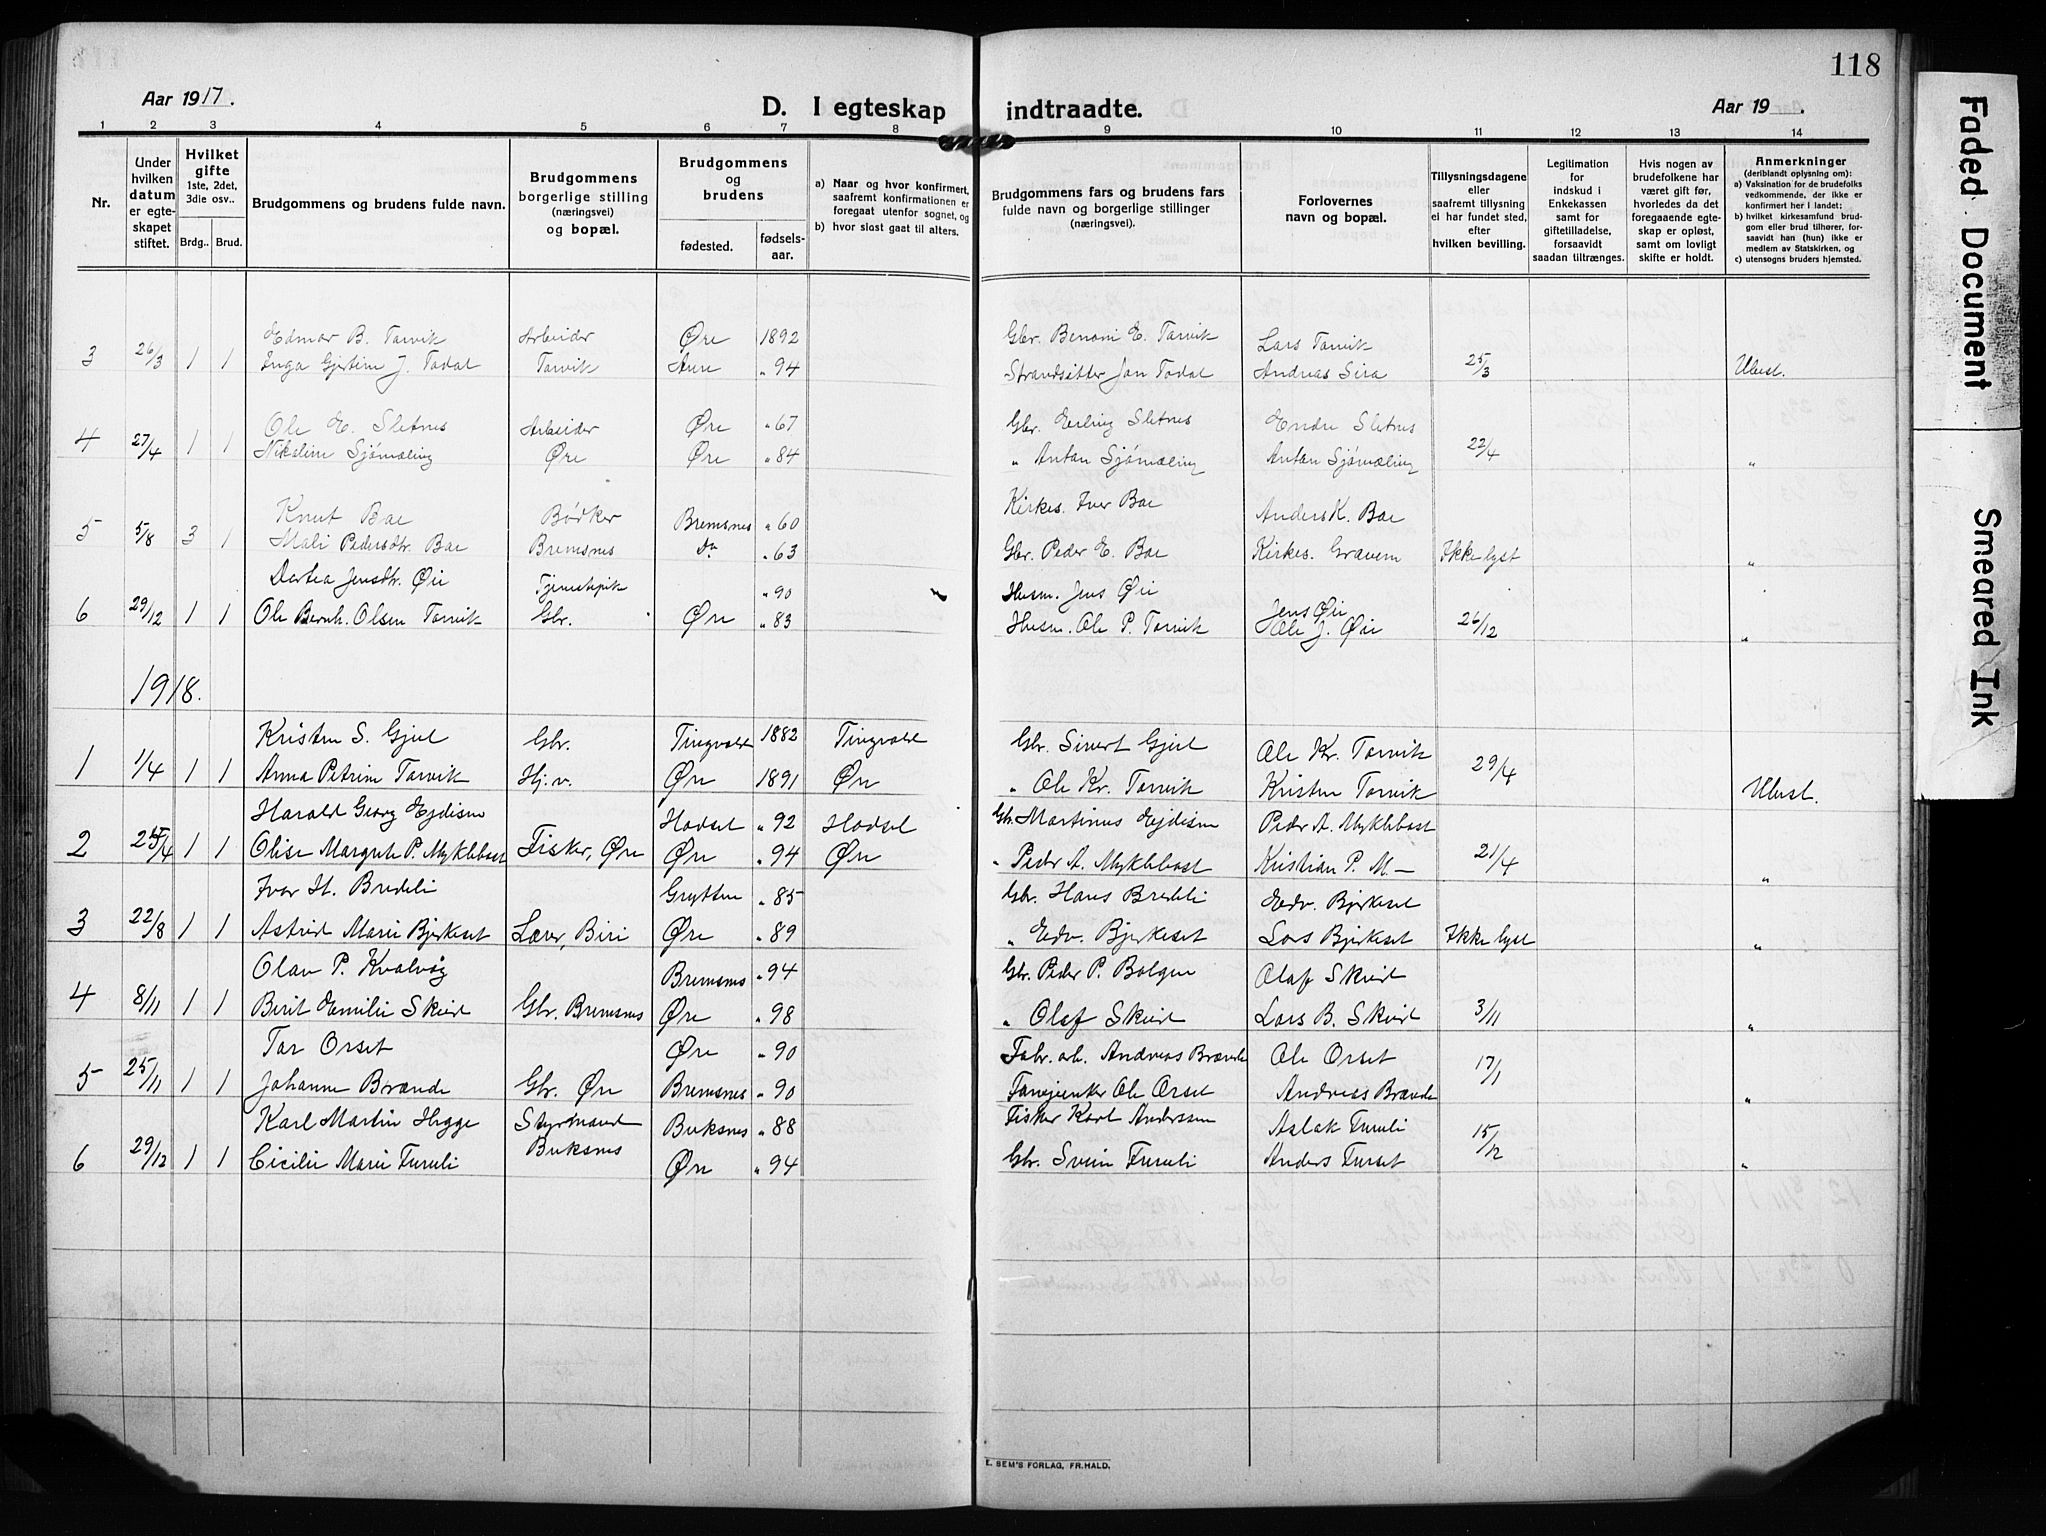 118
Aar 1917.
D. I egteskap indtraadte.
Aar 19 .
1 2 3 4 5 6 7 8 9 10 11 12 13 14
Nr.
Under hvilken datum er egte-skapet stiftet.
Hvilket gifte
1ste, 2det, 3die osv..
Brdg.. Brud.
Brudgommens og brudens fulde navn.
Brudgommens borgerlige stilling (næringsvei) og bopæl.
Brudgommens og brudens
fødested. fødsels-aar.
a) Naar og hvor konfirmert, saafremt konfirmationen er foregaat utenfor sognet, og
b) hvor sidst gaat til alters.
Brudgommens fars og brudens fars fulde navn og borgerlige stillinger (næringsvei).
Forlovernes navn og bopæl.
Tillysningsdagene eller saafremt tillysning ei har fundet sted, efter hvilken bevilling.
Legitimation for indskud i Enkekassen samt for giftetilladelse, forsaavidt saadan tiltrænges.
Hvis nogen av brudefolkene har været gift før, hvorledes da det foregaaende egte-skap er opløst, samt om lovligt skifte er holdt.
Anmerkninger (deriblandt oplysning om):
a) Vaksination for de brudefolks vedkommende, der ikke er konfirmert her i landet;
b) hvilket kirkesamfund brud-gom eller brud tilhører, for-saavidt han (hun) ikke er medlem av Statskirken, og
c) utensogns bruders hjemsted.
Edmar B. Torvik Arbeider Øre 1892 Gbr. Benoni E. Torvik Lars Torvik
3 26/3 1 1 Inga Gjertine J. Todal Torvik Aure " 94 Strandsitter Jon Todal Andreas Sira 25/3 Ubesl.
Ole E. Sletnes Arbeider Øre " 67 Gbr. Erling Sletnes Endre Sletnes
4 27/4 1 1 Nikoline Sjømæling Øre Øre " 84 " Anton Sjømæling Anton Sjømæling 22/4 "
Knut Boe Bødker Bremsnes " 60 Kirkes. Iver Boe Anders K. Boe
5 5/8 3 1 Mali Pedersdtr. Boe Bremsnes do " 63 Gbr. Peder E. Boe Kirkes. Gravem Ikke lyst "
Dortea Jensdtr. Øie Tjenestepik " 90 Husm. Jens Øie Jens Øie
6 29/12 1 1 Ole Bernh. Olsen Torvik Gbr. Øre " 83 Husm. Ole P. Torvik Ole J. Øie 26/12 "
1918.
Kristen S. Gjul Gbr. Tingvold 1882 Tingvold Gbr. Sivert Gjul Ole Kr. Torvik
1 1/4 1 1 Anna Petrine Torvik Hj.v. Øre 1891 Øre " Ole Kr. Torvik Kristen Torvik 29/4 Ubesl.
Harald Georg Ejdisen Hadsel " 92 Hadsel Gbr. Martinus Ejdisen Peder A. Myklebost
2 25/4 1 1 Olise Margrete P. Myklebost Fisker, Øre Øre " 94 Øre " Peder A. Myklebost Kristian P. M. — 21/4 "
Ivar H. Bredeli Grytten " 85 Gbr. Hans Bredeli Edv. Bjerkeset
3 22/8 1 1 Astrid Marie Bjerkeset Lærer, Biri Øre " 89 " Edv. Bjerkeset Lars Bjerkeset Ikke lyst "
Olav P. Kvalvåg Bremsnes " 94 Gbr. Peder P. Bolgen Olaf Skeid
4 8/11 1 1 Berit Emilie Skeid Gbr. Bremsnes Øre " 98 " Olaf Skeid Lars B. Skeid 3/11 "
Tor Orset Øre " 90 Fabr. arb. Andreas Brænde Ole Orset
5 25/11 1 1 Johanne Brænde Gbr. Øre Bremsnes " 90 Ole Orset Andreas Brænde 17/1 "
Karl Martin Hegge Styrmand Buksnes " 88 Fisker Karl Anderssen Aslak Furuli
6 29/12 1 1 Cicilie Marie Furuli Buksnes Øre " 94 Gbr. Svein Furuli Anders Furset 15/12 "
E. SEM'S FORLAG, FR.HALD.
Faded Document
Smeared Ink